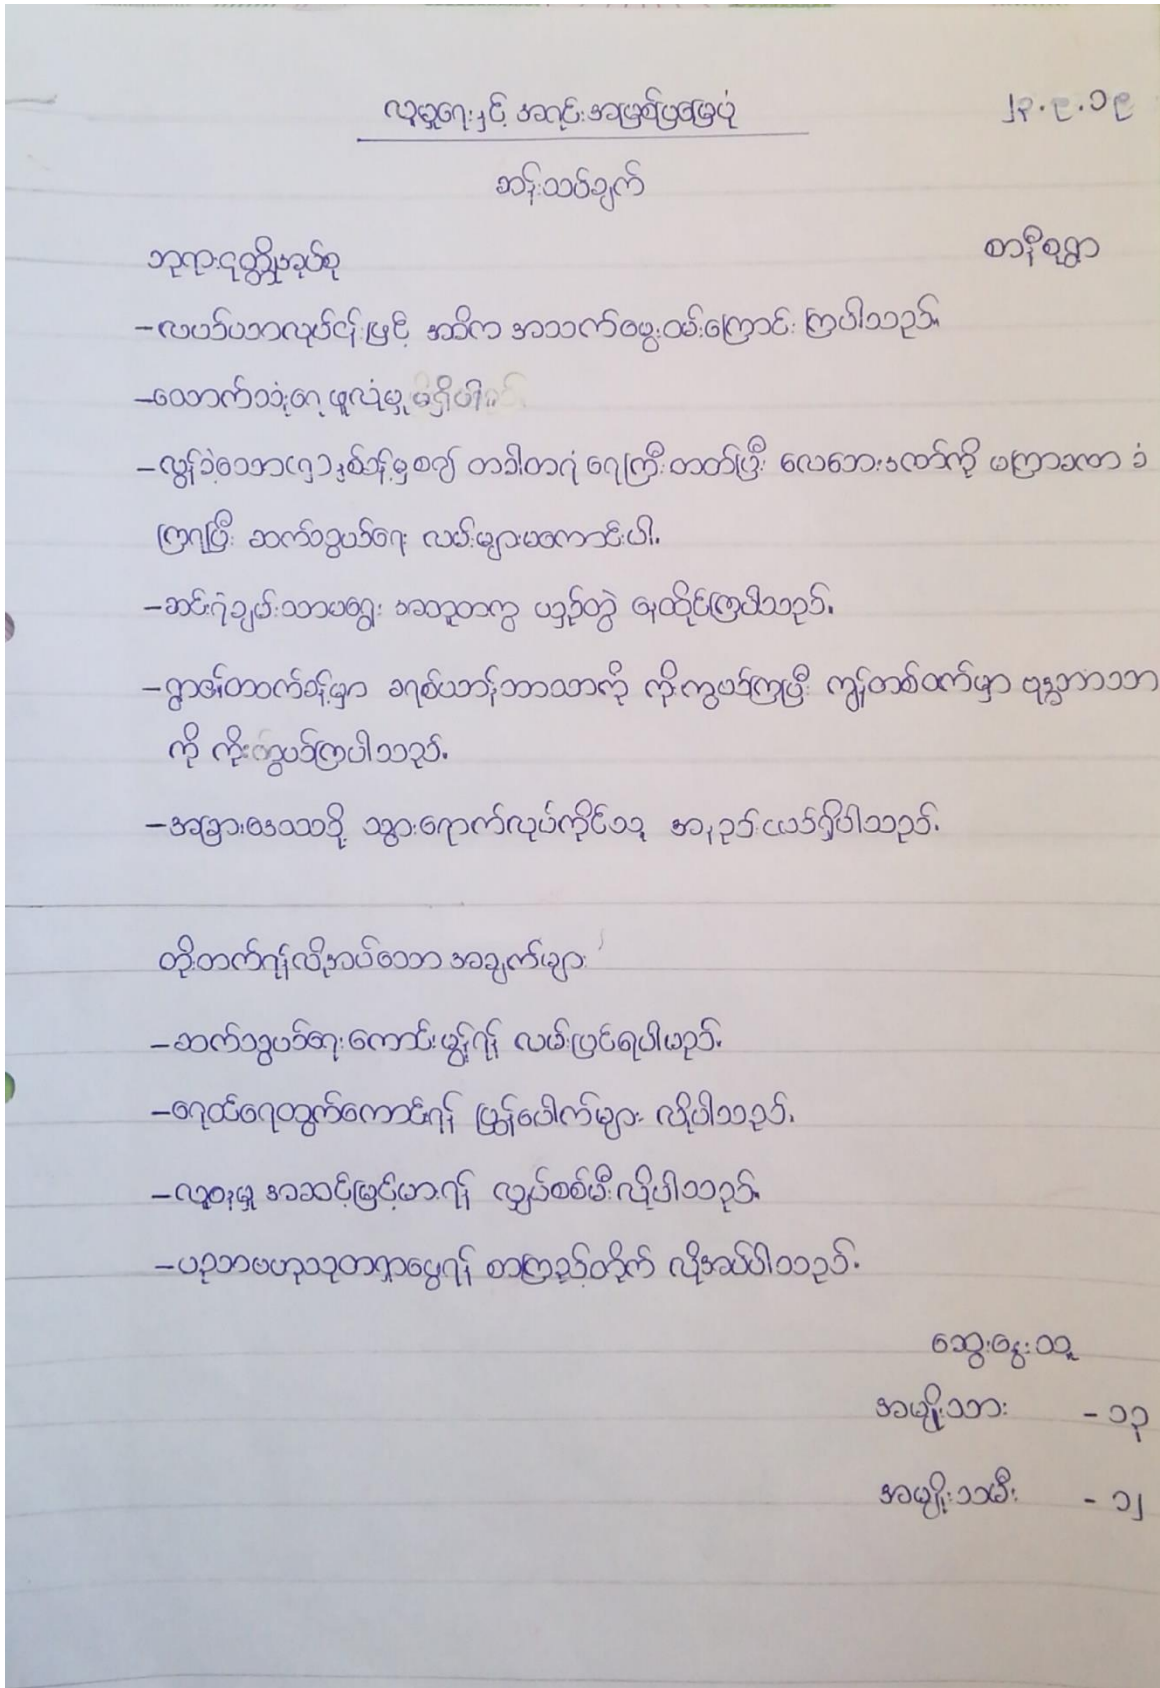 လူမှုရေးနှင့် အရင်းအမြစ်ပြမြေပုံ ၂၃.၉.၁၉
ဆန်းသပ်ချက်
ဘုရားငုတ္တိုအုပ်စု စာနီစုရွာ
-လယ်ယာလုပ်ငန်းဖြင့် အဓိက အသက်မွေးဝမ်းကြောင်း ကြပါသည်။
-သောက်သုံးရေ ဖူလုံမှု မရှိပါ။
-လွန်ခဲ့သော(၅)နှစ်ခန့်မှစ၍ တခါတရံ ရေကြီးတတ်ပြီး လေဘေးဒဏ်ကို မကြာခဏ ခံ
ကြရပြီး ဆက်သွယ်ရေး လမ်းများမကောင်းပါ.
-ဆင်းရဲချမ်းသာမရွေး အတူတကွ ယှဉ်တွဲ နေထိုင်ကြပါသည်.
-ရွာ၏တဝက်ခန့်မှာ ခရစ်ယာန်ဘာသာကို ကိုးကွယ်ကြပြီး ကျန်တစ်ဝက်မှာ ဗုဒ္ဓဘာသာ
ကို ကိုးကွယ်ကြပါသည်.
-အခြားဒေသသို့ သွားရောက်လုပ်ကိုင်သူ အနည်းငယ်ရှိပါသည်.
တိုးတက်ရန်လိုအပ်သော အချက်များ
-ဆက်သွယ်ရေးကောင်းမွန်ရန် လမ်းပြင်ရပါမည်.
-ရေထင်ရေထွက်ကောင်းရန် ပြွန်ပေါက်များ လိုပါသည်.
-လူနေမှု အဆင့်မြင့်မားရန် လျှပ်စစ်မီးလိုပါသည်.
-ပညာဗဟုသုတရှာမွေရန် စာကြည့်တိုက် လိုအပ်ပါသည်.
ဆွေးနွေးသူ
အမျိုးသား - ၁၃
အမျိုးသမီး - ၁၂